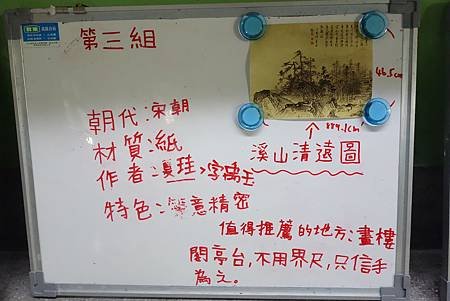 第三組
46.5cm
889.1cm
溪山清遠圖
朝代:宋朝
材質:紙
作者:夏珪,字禹玉
特色:意精密
值得推薦的地方:畫樓
閣亭台,不用界尺,只信手
為之。